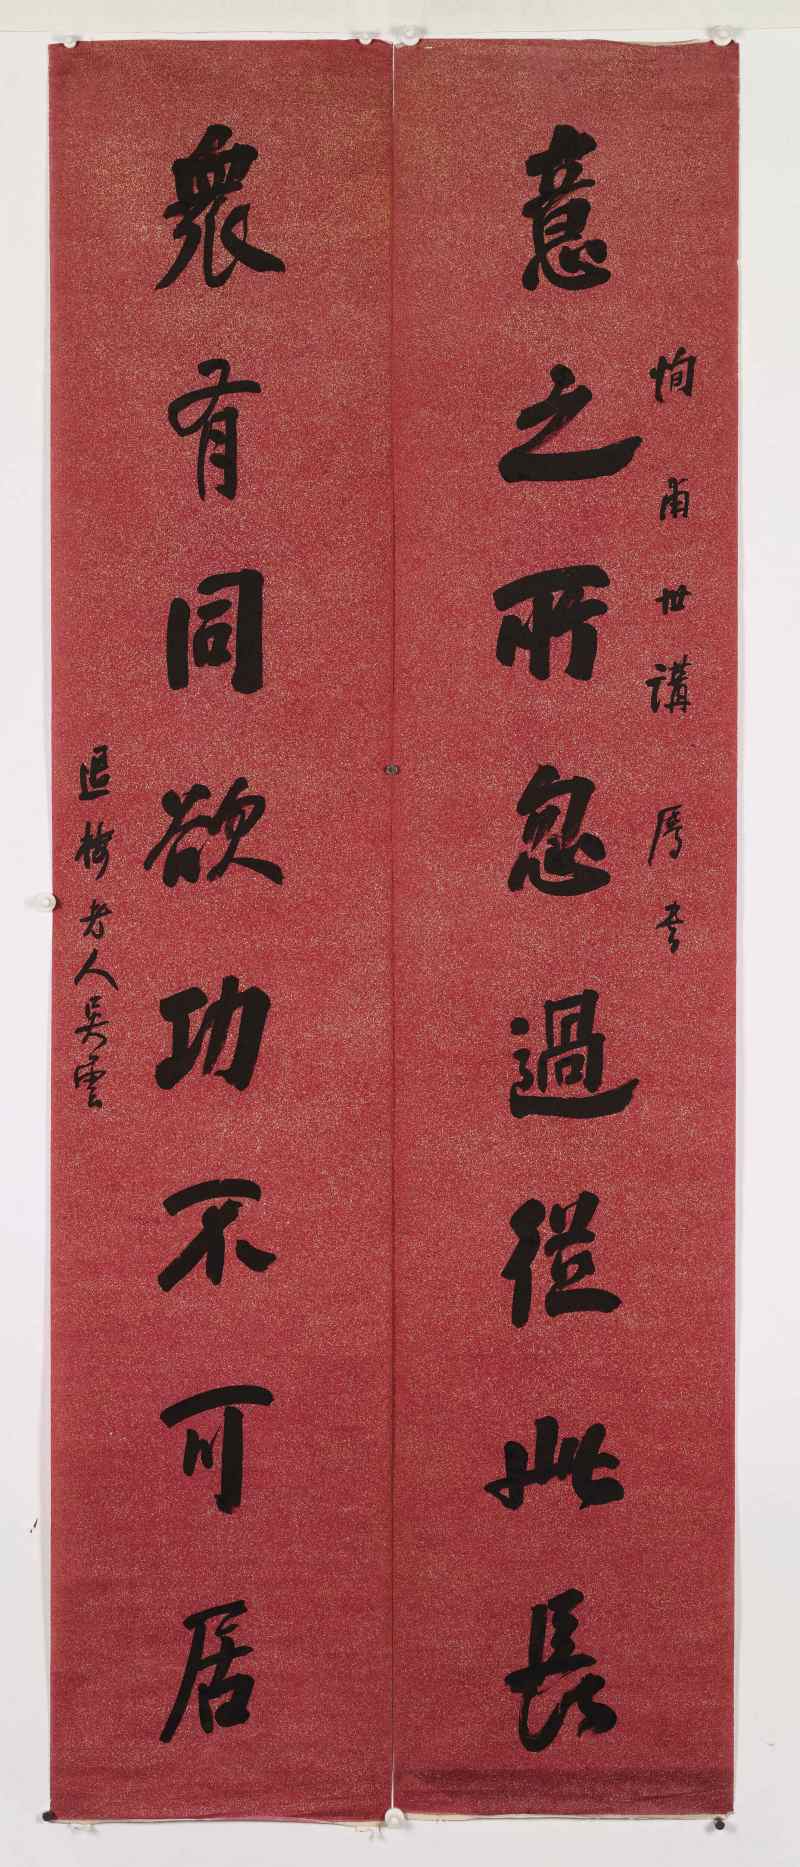 恂甫世講屬書
意之所忽過從此長
衆有同欲功不可居
退樓老人吳雲